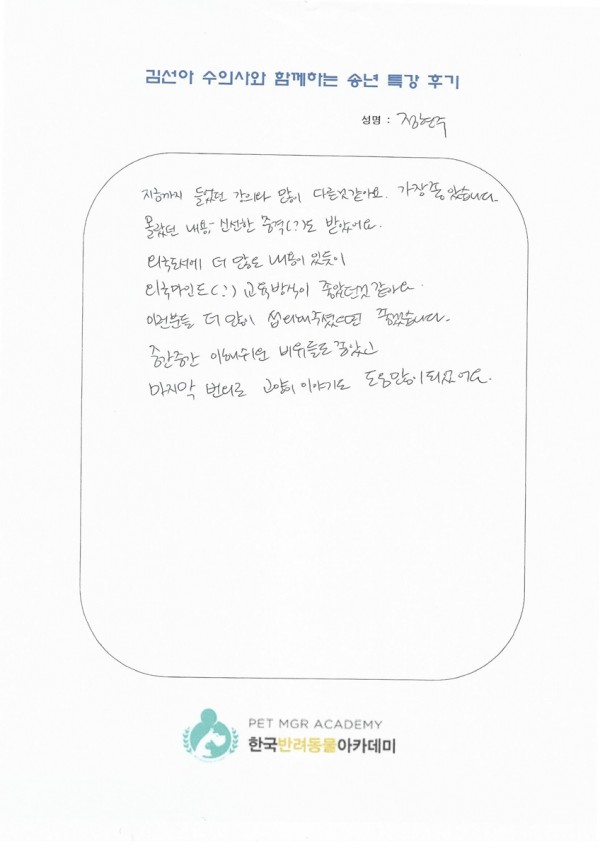 김선아 수의사와 함께하는 송년 특강 후기
성명 : 정현주
지금까지 들었던 강의와 많이 다른것같아요. 가장 좋았습니다.
몰랐던 내용, 신선한 충격(?)도 받았어요.
외국도서에 더 많은 내용이 있듯이
외국마인드(?) 교육방식이 좋았던것 같아요.
이런분들 더 많이 섭외해주셨으면 좋겠습니다.
중간중간 이해쉬운 비유들도 좋았고
마지막 번외로 고양이 이야기도 도움많이되었어요.
PET MGR ACADEMY
한국반려동물아카데미